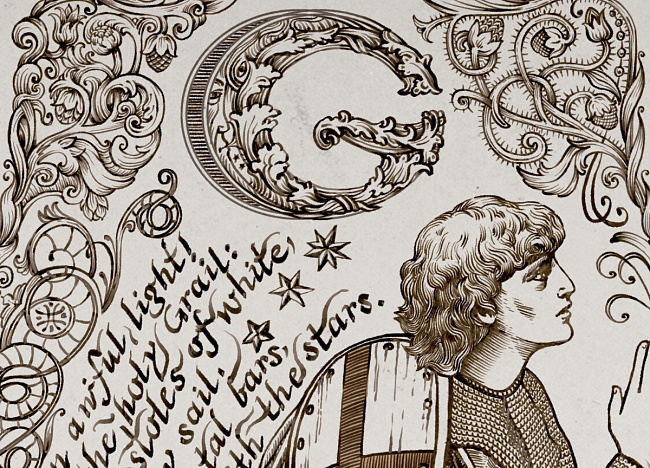 G
awful light!
he holy Grail:
stoles of white,
sail.
tal bars,
th the stars.